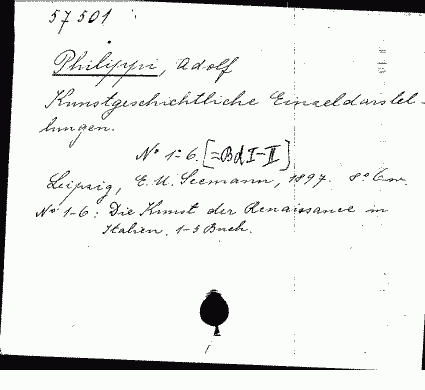 57501
Philippi, Adolf
Kunstgeschichtliche Einzeldarstel-
lungen.
No 1-6. [=Bd I-II]
Leipzig, E. A. Seemann, 1897. 8°
No 1-6: Die Kunst der Renaissance in
Italien. 1-5 Buch.